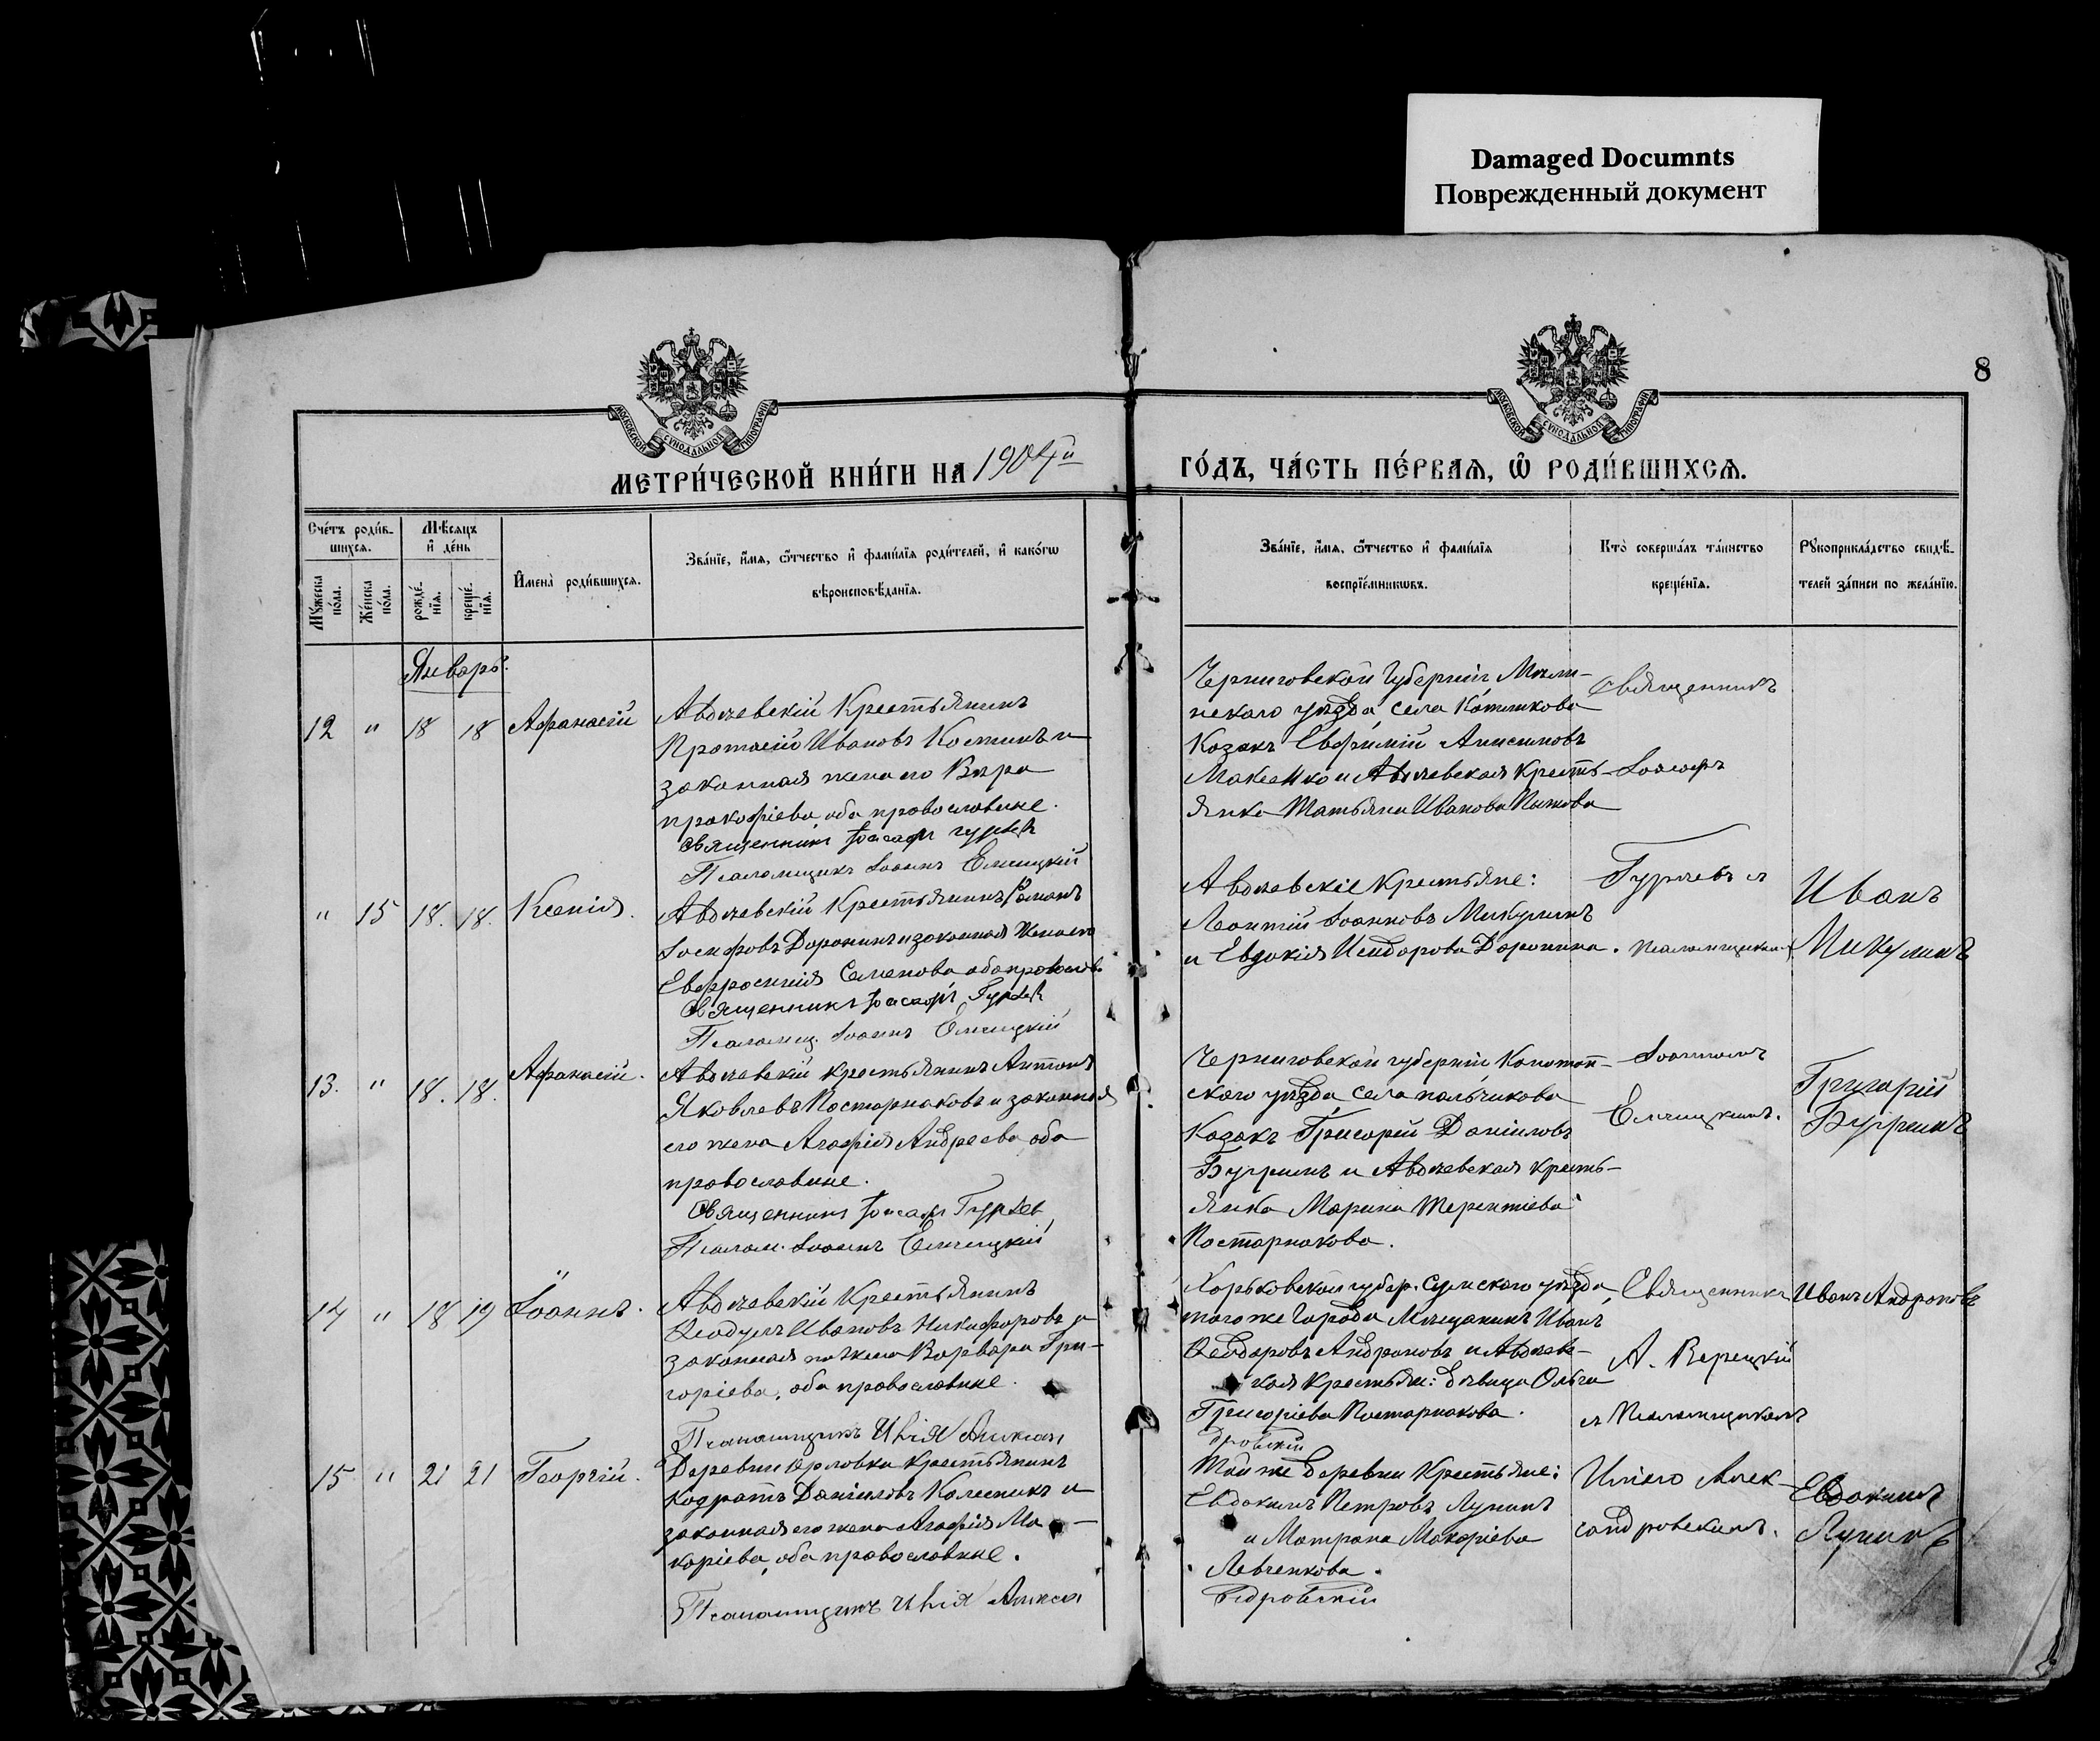 Damaged Documnts
Поврежденный документ
8
МОСКОВСКОЙ СУНОДАЛЬНОЙ ТИПОГРАФІИ
МОСКОВСКОЙ СУНОДАЛЬНОЙ ТИПОГРАФІИ
МЕТРИ́ЧЕСКОЙ КНИ́ГИ НА 1904й
ГО́ДЪ, ЧА́СТЬ ПЕ́РВАѦ, Ѡ҆ РОДИ́ВШИХСѦ.
Сче́тъ роди́в-
шихсѧ.
Мѣ́сѧцъ
и҆ де́нь
Мꙋ́жеска по́ла.
Же́нска по́ла.
рожде́-
нїѧ.
креще́-
нїѧ.
И҆мена̀ роди́вшихсѧ.
Зва́нїе, и҆́мѧ, ѻ҆́тчество и҆ фами́лїѧ роди́телей, и҆ како́гѡ
вѣроисповѣ́данїѧ.
Зва́нїе, и҆́мѧ, ѻ҆́тчество и҆ фами́лїѧ
воспрїе́мникѡвъ.
Кто̀ соверша́лъ та́инство
креще́нїѧ.
Рꙋкоприкла́дство свидѣ́-
телей за́писи по жела́нїю.
Январь.
12 " 18 18 Афанасій
Авдѣевскій Крестьянинъ
Протасій Ивановъ Костинъ и
законная жена его Вѣра
прокофіева, оба православные.
Священникъ Іоасафъ Гурьевъ
Псаломщикъ Іоаннъ Елчицкій
Черниговской Губерніи Мгли-
нскаго уѣзда, села Котликова
Козакъ Евфимій Анисимовъ
Макеенко и Авдѣевская кресть-
янка Татьяна Иванова Пыжова
Священникъ
Іоасафъ
" 15 18. 18. Ксенія.
Авдѣевскій Крестьянинъ Романъ
Іосифовъ Доронинъ и законная жена его
Евфросинія Семенова оба православ.
Священникъ Іоасафъ Гурьевъ
Псаломщ. Іоаннъ Елчицкій
Авдѣевскіе крестьяне:
Леонтій Іоанновъ Микулинъ
и Евдокія Исидорова Доронина.
Гурьевъ и
псаломщикъ
Иванъ
Микулинъ
13. " 18. 18. Афанасій.
Авдѣевскій крестьянинъ Антонъ
Яковлевъ Пастарнаковъ и законная
его жена Агафія Андреева, оба
православные.
Священникъ Іоасафъ Гурьев
Псалом. Іоаннъ Елчицкій
Черниговской губерніи Конотоп-
скаго уѣзда, села пальчикова
Козакъ Григорій Даніиловъ
Бугримъ и Авдѣевская кресть-
янка Марина Терентіева
Пастарнакова.
Іоанномъ
Елчицкимъ.
Григорій
Бугримъ
14 " 18 19 Іоаннъ.
Авдѣевскій Крестьянинъ
Ѳеодулъ Ивановъ Никифоровъ и
законная жена Варвара Гри-
горіева, оба православные.
Псаломщикъ Илія Алексан
Харьковской губер. Сумскаго уѣзда
тогоже Города Мѣщанинъ Иванъ
Ѳеодоровъ Андроновъ и Авдѣев-
кая крестьян: дѣвица Ольга
Григоріева Пастарнакова.
дровскій
Священникъ
А. Верецкій
и Псаломщикомъ
Иванъ Андроновъ
15 " 21 21 Георгій.
Деревни Орловки крестьянинъ
Кодратъ Даніиловъ Колесникъ и
законная его жена Агафія Ма-
каріева, оба православные.
Псаломщикъ Илія Алекса
Той же деревни Крестьяне:
Евдокимъ Петровъ Лунинъ
и Матрона Макаріева
Левченкова.
ндровскій
Иліею Алек-
сандровскимъ.
Евдокимъ
Лунинъ